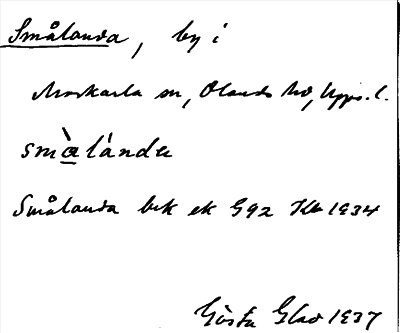 Smålanda, by i
Morkarla sn, Olands hd, Upps. l.
smàlánda
Smålanda bek ek G92 Kb 1934
Gösta Glad 1937